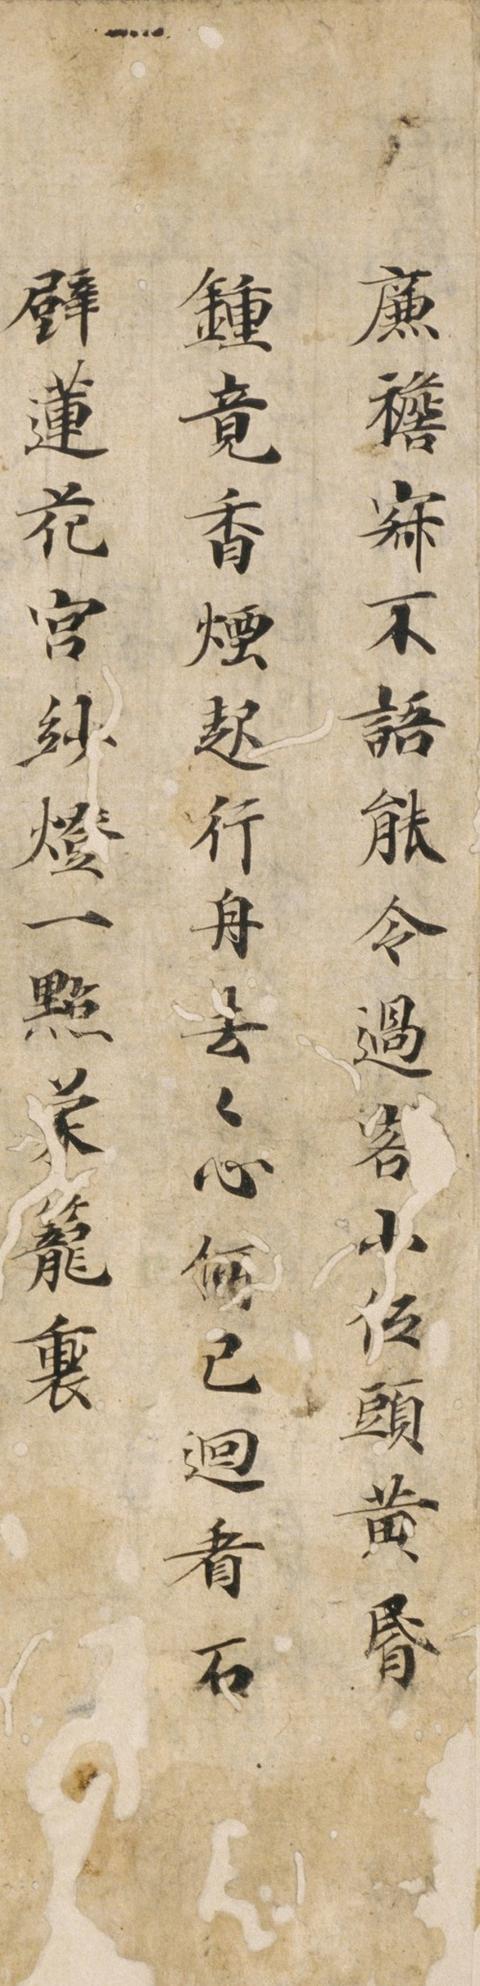 廉襜寂不語能令過客小伍頭黃昏
鍾竟香煙起行舟去〻心何已迴看石
壁蓮花宮紗燈一點茱籠裏